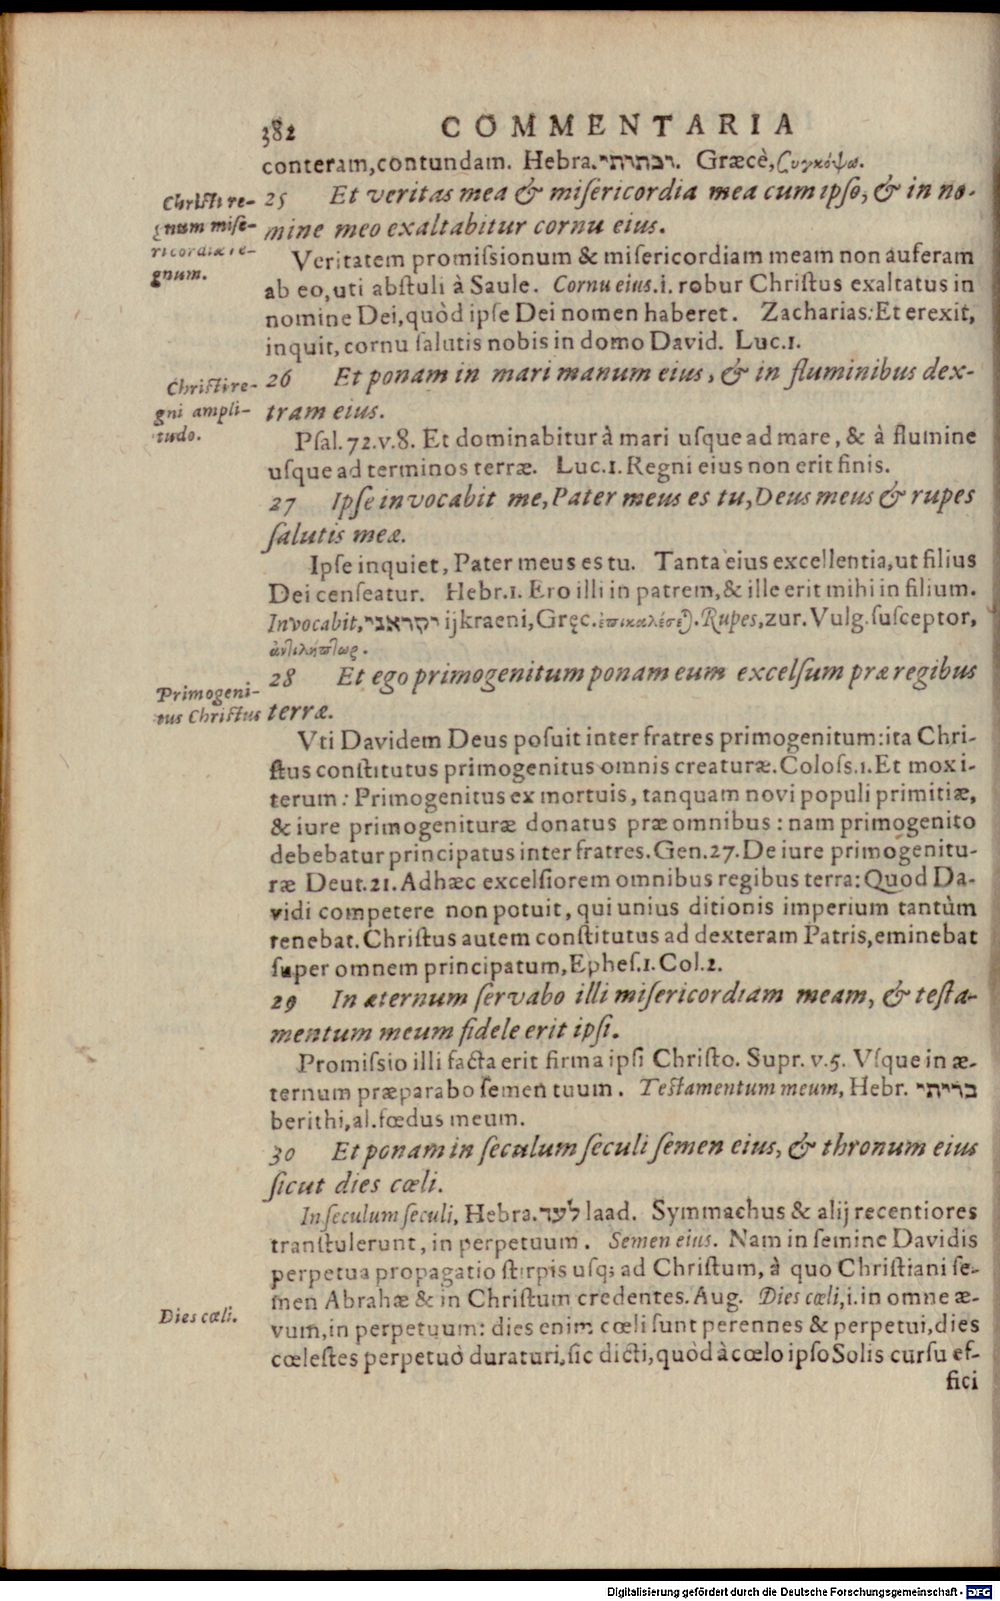 382 COMMENTARIA
conteram,contundam. Hebra.וכתותי. Græcè,συγκόψω.
Christi re-
gnum mise-
ricordiæ re-
gnum.
25 Et veritas mea & miſericordia mea cum ipſo, & in no-
mine meo exaltabitur cornu eius.
Veritatem promiſsionum & miſericordiam meam non auferam
ab eo,uti abſtuli à Saule. Cornu eius.i. robur Chriſtus exaltatus in
nomine Dei,quòd ipſe Dei nomen haberet. Zacharias: Et erexit,
inquit, cornu ſalutis nobis in domo David. Luc.1.
Chriſti re-
gni ampli-
tudo.
26 Et ponam in mari manum eius, & in fluminibus dex-
tram eius.
Pſal.72.v.8. Et dominabitur à mari uſque ad mare, & à flumine
uſque ad terminos terræ. Luc.1. Regni eius non erit finis.
27 Ipſe invocabit me, Pater meus es tu, Deus meus & rupes
ſalutis meæ.
Ipſe inquiet, Pater meus es tu. Tanta eius excellentia,ut filius
Dei cenſeatur. Hebr.1. Ero illi in patrem,& ille erit mihi in filium.
Invocabit,יקראני ijkraeni, Gręc.ἐπικαλέσε). Rupes,zur. Vulg.ſuſceptor,
ἀντιλήπτωρ.
Primogeni-
tus Chriſtus
28 Et ego primogenitum ponam eum excelſum præ regibus
terræ.
Vti Davidem Deus poſuit inter fratres primogenitum:ita Chri-
ſtus conſtitutus primogenitus omnis creaturæ. Coloſs.1. Et mox i-
terum: Primogenitus ex mortuis, tanquam novi populi primitiæ,
& iure primogenituræ donatus præ omnibus: nam primogenito
debebatur principatus inter fratres. Gen.27. De iure primogenitu-
ræ Deut.21. Adhæc excelſiorem omnibus regibus terra: Quod Da-
vidi competere non potuit, qui unius ditionis imperium tantùm
tenebat. Chriſtus autem conſtitutus ad dexteram Patris, eminebat
ſuper omnem principatum, Epheſ.1. Col.2.
29 In æternum ſervabo illi miſericordiam meam, & teſta-
mentum meum fidele erit ipſi.
Promiſsio illi facta erit firma ipſi Chriſto. Supr. v.5. Vſque in æ-
ternum præparabo ſemen tuum. Teſtamentum meum, Hebr. בריתי
berithi,al.fœdus meum.
30 Et ponam in ſeculum ſeculi ſemen eius, & thronum eius
ſicut dies cœli.
In ſeculum ſeculi, Hebra.לער laad. Symmachus & alij recentiores
tranſtulerunt, in perpetuum. Semen eius. Nam in ſemine Davidis
perpetua propagatio ſtirpis uſq; ad Chriſtum, à quo Chriſtiani ſe-
men Abrahæ & in Chriſtum credentes. Aug. Dies cœli,i. in omne æ-
Dies cœli.
vum,in perpetuum: dies enim cœli ſunt perennes & perpetui,dies
cœleſtes perpetuò duraturi,ſic dicti,quòd à cœlo ipſo Solis curſu ef-
fici
Digitalisierung gefördert durch die Deutsche Forschungsgemeinschaft - DFG